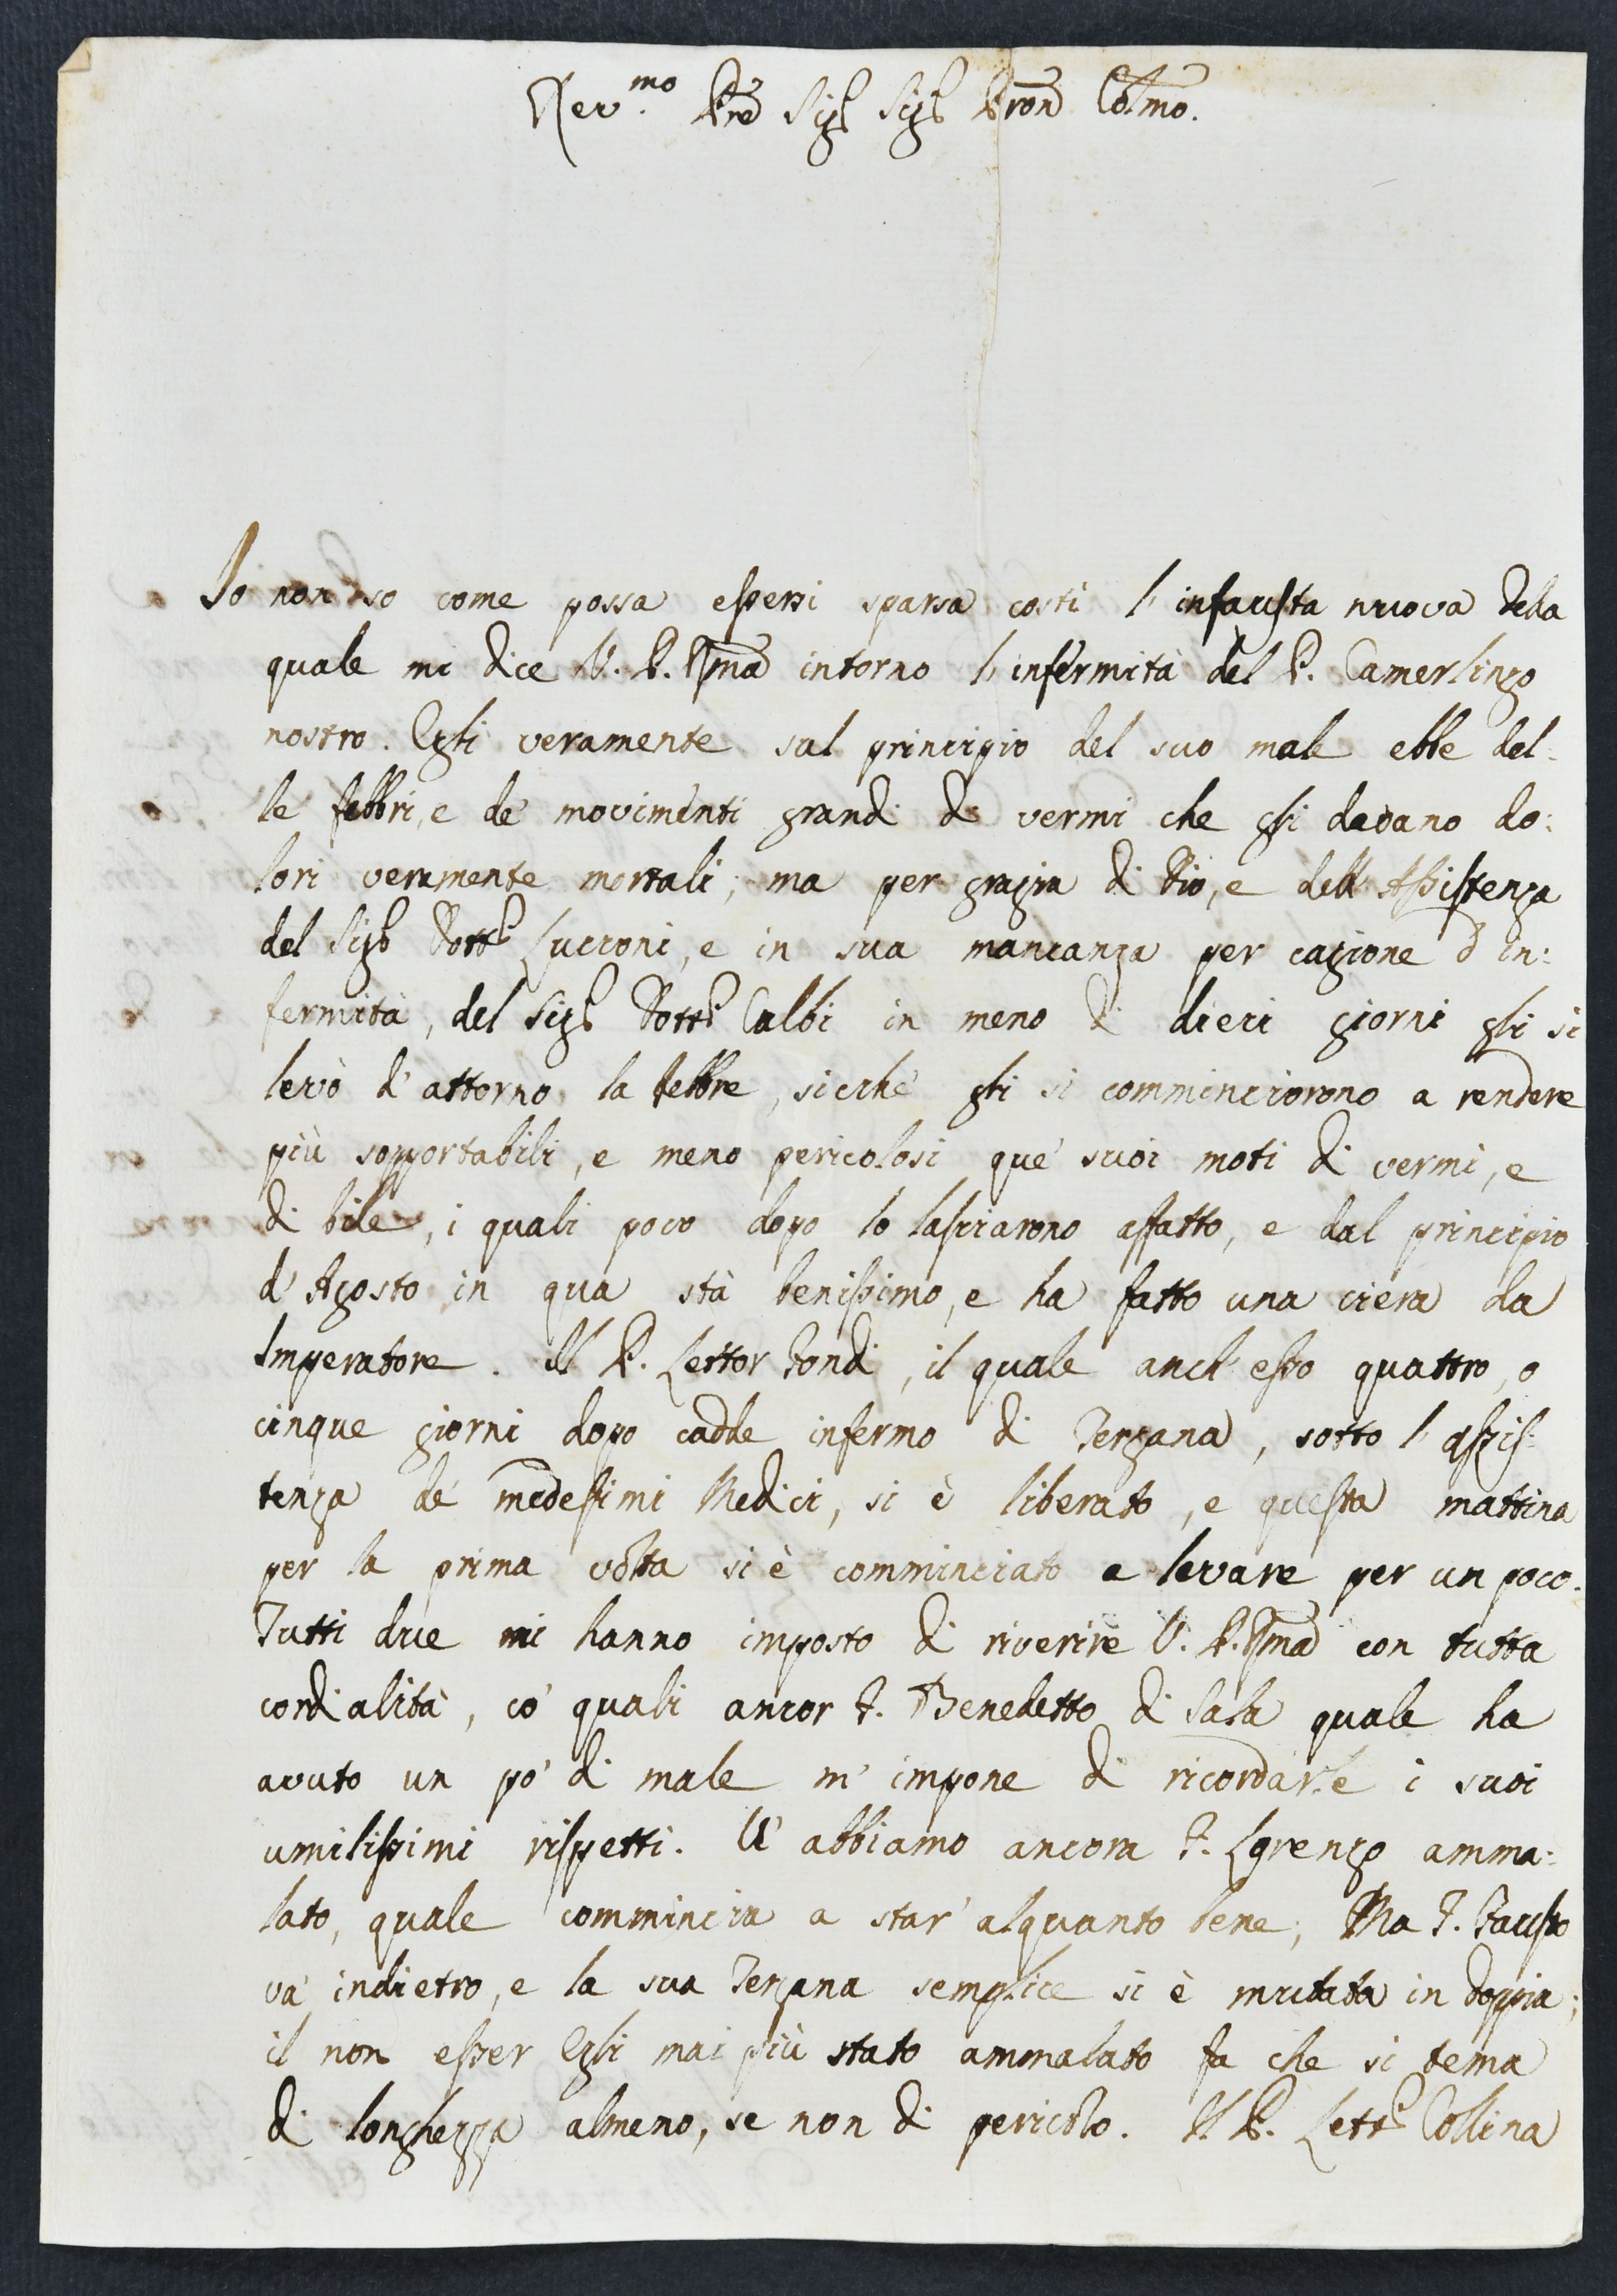 Rev.mo Pre Sigr Sigr Pron Colmo.
Io non so come possa essersi sparsa costì l'infausta nuova della
quale mi dice V. P. Rma intorno l'infermità del P. Camerlingo
nostro. Egli veramente sul principio del suo male ebbe del=
le febbri, e de' movimenti grandi di vermi che gli davano do=
lori veramente mortali; ma per grazia di Dio, e dell'Assistenza
del Sigr Dottr Lucconi, e in sua mancanza per cagione d'in=
fermità, del Sigr Dottr Calbi in meno di dieci giorni gli si
levò d'attorno la febbre, sicché gli si comminciorono a rendere
più sopportabili, e meno pericolosi que' suoi moti di vermi, e
di bile, i quali poco dopo lo lasciarono affatto, e dal principio
d'Agosto in qua stà benissimo, e ha fatto una ciera da
Imperatore. Il P. Lettor Fondi, il quale anch'esso quattro, o
cinque giorni dopo cadde infermo di Terzana, sotto l'assis=
tenza de' medesimi Medici, si è liberato, e questa mattina
per la prima volta si è comminciato a levare per un poco.
Tutti due mi hanno imposto di riverire V. P. Rma con tutta
cordialità, co' quali ancor F. Benedetto di Sala quale ha
avuto un po' di male m'impone di ricordarle i suoi
umilissimi rispetti. V'abbiamo ancora F. Lorenzo amma=
lato, quale commincia a star' alquanto bene; Ma F. Fausto
và indietro, e la sua Terzana semplice si è mutata in doppia;
il non esser Egli mai più stato ammalato fa che si tema
di longhezza almeno, se non di pericolo. Il P. Lettr Collina